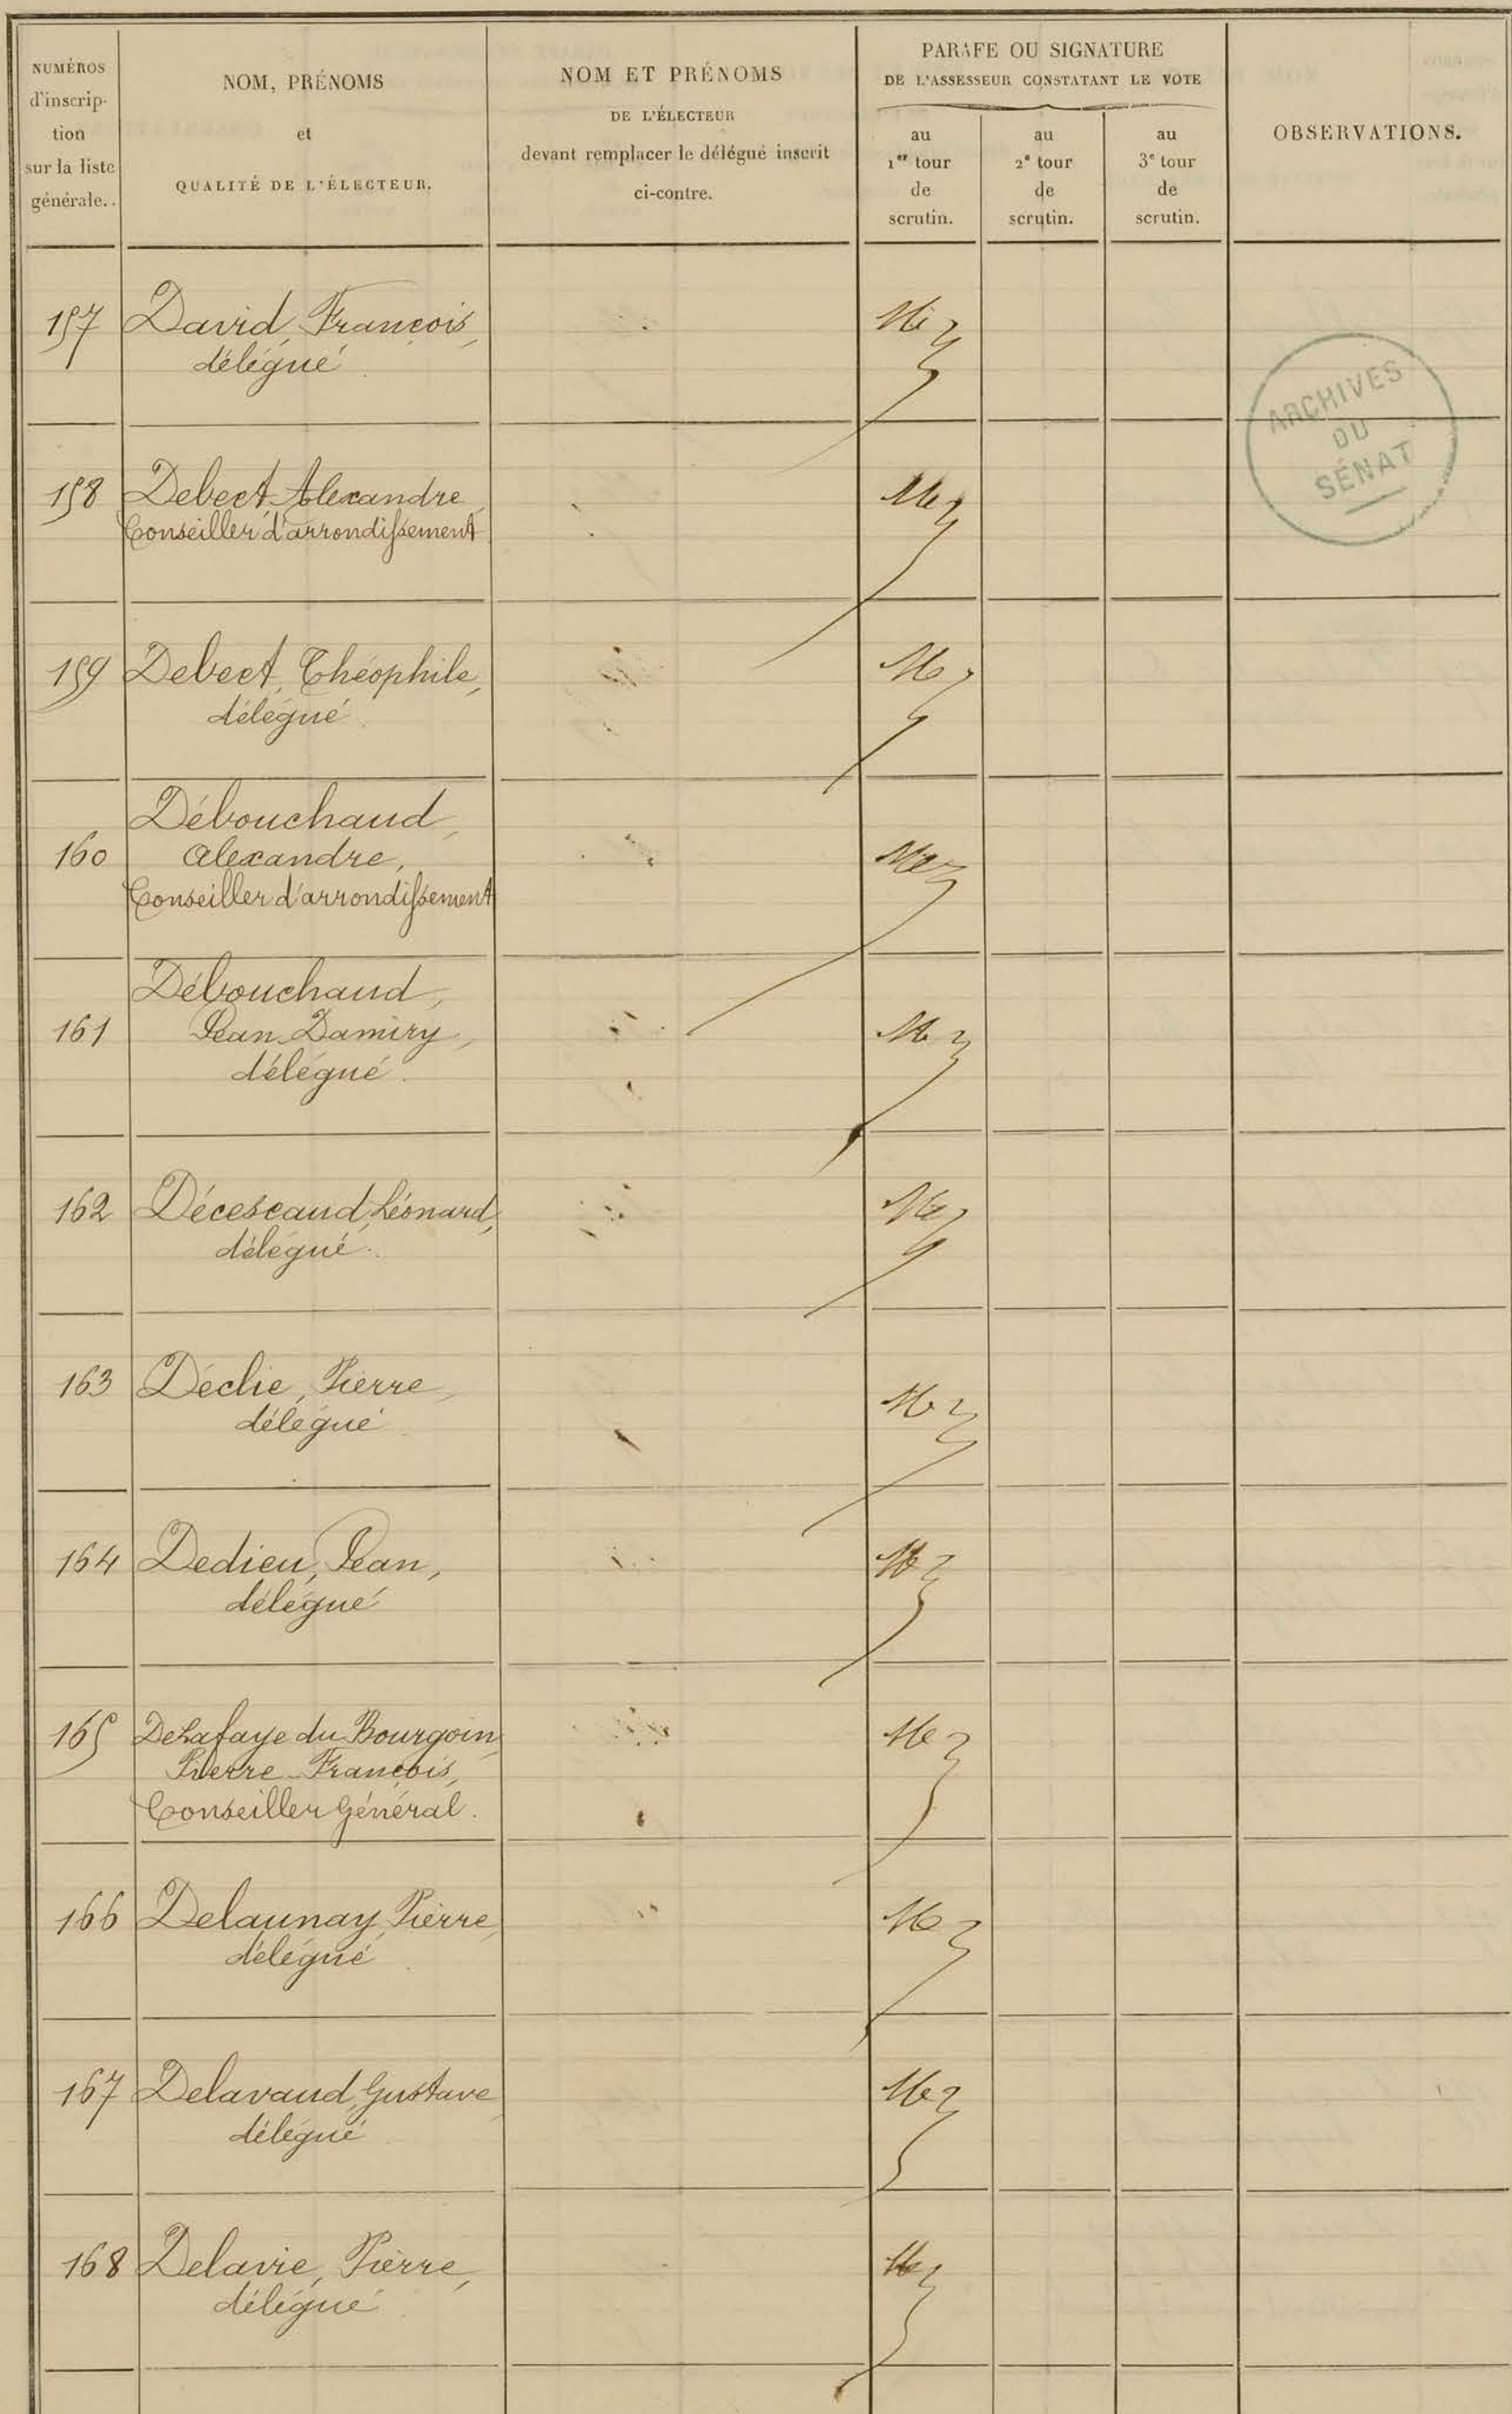 NUMÉROS
d'inscrip-
tion
sur la liste
générale.
NOM, PRÉNOMS
et
QUALITÉ DE L'ÉLECTEUR.
NOM ET PRÉNOMS
DE L'ÉLECTEUR
devant remplacer le délégué inscrit
ci-contre.
PARAFE OU SIGNATURE
DE L'ASSESSEUR CONSTATANT LE VOTE
au
1er tour
de
scrutin.
au
2e tour
de
scrutin.
au
3e tour
de
scrutin.
OBSERVATIONS.
157 David, François,
délégué
ARCHIVES
DU
SÉNAT
158 Debect Alexandre
Conseiller d'arrondissement
159 Debect, Théophile,
délégué
Débouchaud,
160 Alexandre,
Conseiller d'arrondissement
Débouchaud,
161 Jean Damiry,
délégué
162 Décescaud, Léonard,
délégué
163 Déclie, Pierre,
délégué
164 Dedieu, Jean,
délégué
165 DeLafaye du Bourgoin,
Pierre François,
Conseiller Général.
166 Delaunay, Pierre,
délégué
167 Delavaud, Gustave
délégué
168 Delavie, Pierre,
délégué